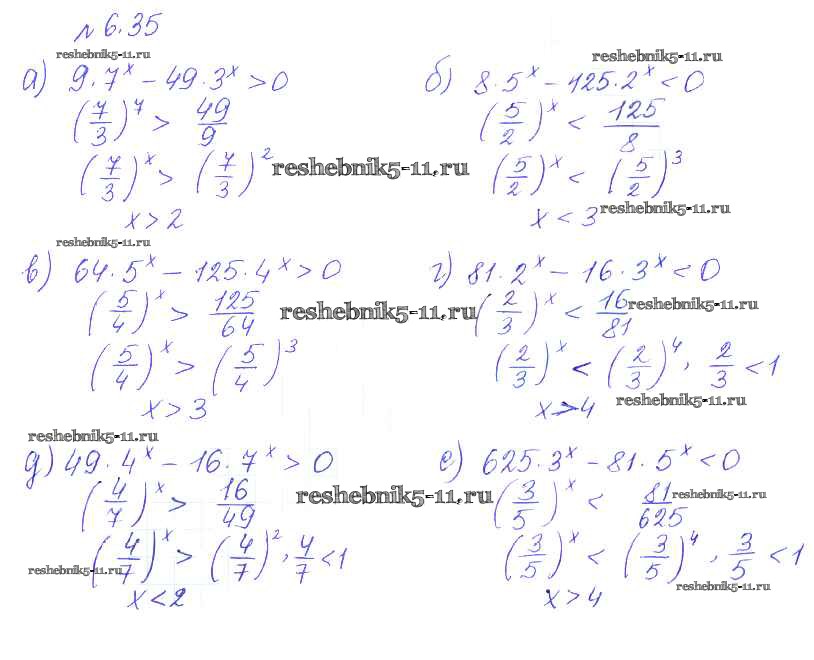 № 6.35
reshebnik5-11.ru
а) 9·7^x − 49·3^x > 0
(7/3)^7 > 49/9
(7/3)^x > (7/3)^2
reshebnik5-11.ru
x > 2
reshebnik5-11.ru
б) 8·5^x − 125·2^x < 0
(5/2)^x < 125/8
(5/2)^x < (5/2)^3
x < 3
reshebnik5-11.ru
reshebnik5-11.ru
в) 64·5^x − 125·4^x > 0
(5/4)^x > 125/64
reshebnik5-11.ru
(5/4)^x > (5/4)^3
x > 3
г) 81·2^x − 16·3^x < 0
(2/3)^x < 16/81
reshebnik5-11.ru
(2/3)^x < (2/3)^4, 2/3 < 1
x > 4
reshebnik5-11.ru
reshebnik5-11.ru
д) 49·4^x − 16·7^x > 0
(4/7)^x > 16/49
reshebnik5-11.ru
(4/7)^x > (4/7)^2, 4/7 < 1
reshebnik5-11.ru
x < 2
е) 625·3^x − 81·5^x < 0
(3/5)^x < 81/625
reshebnik5-11.ru
(3/5)^x < (3/5)^4, 3/5 < 1
reshebnik5-11.ru
x > 4